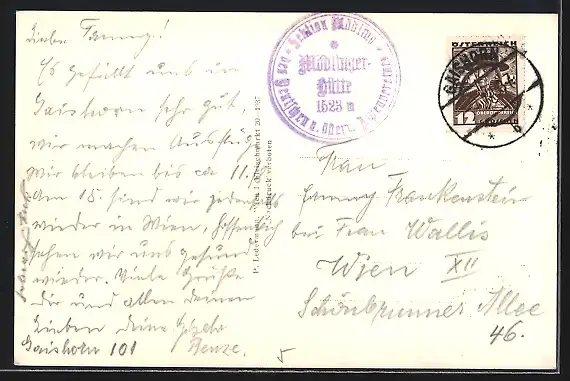 Liebe Fanny!
Es gefällt uns in
Gaishorn sehr gut,
wir machen Ausflüge
wir bleiben bis ca 11./
Am 15. sind wir jedenfalls
wieder in Wien, hoffentlich
sehen wir uns gesund
wieder. Viele Grüße
dir und allen deinen
Lieben deine
Gaishorn 101
Sektion Mödling
des Deutschen u. Österr. Alpenvereines
Mödlinger-
Hütte
1523 m
P. Ledermann, Wien I Fleischmarkt 20 - 1937
Nachdruck verboten
ÖSTERREICH
12
OBERÖSTERREICH
GAISHORN
Frau
Fanny Frankenstein
bei Frau Wallis
Wien XII
Schönbrunner Allee
46.
5